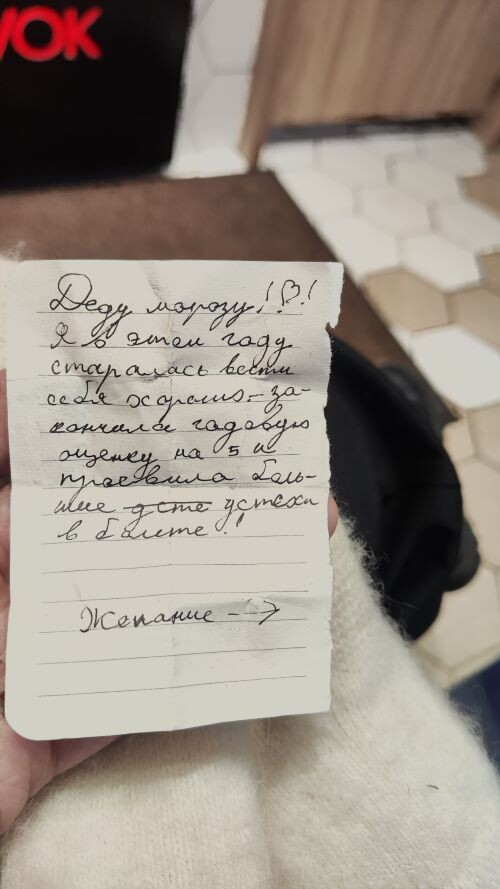 WOK
Деду морозу!!?!
Я в этом году
старалась вести
себя хорошо - за-
кончила годовую
оценку на 5 и
проевила боль-
шие усте успехи
в балете!
Желание -->